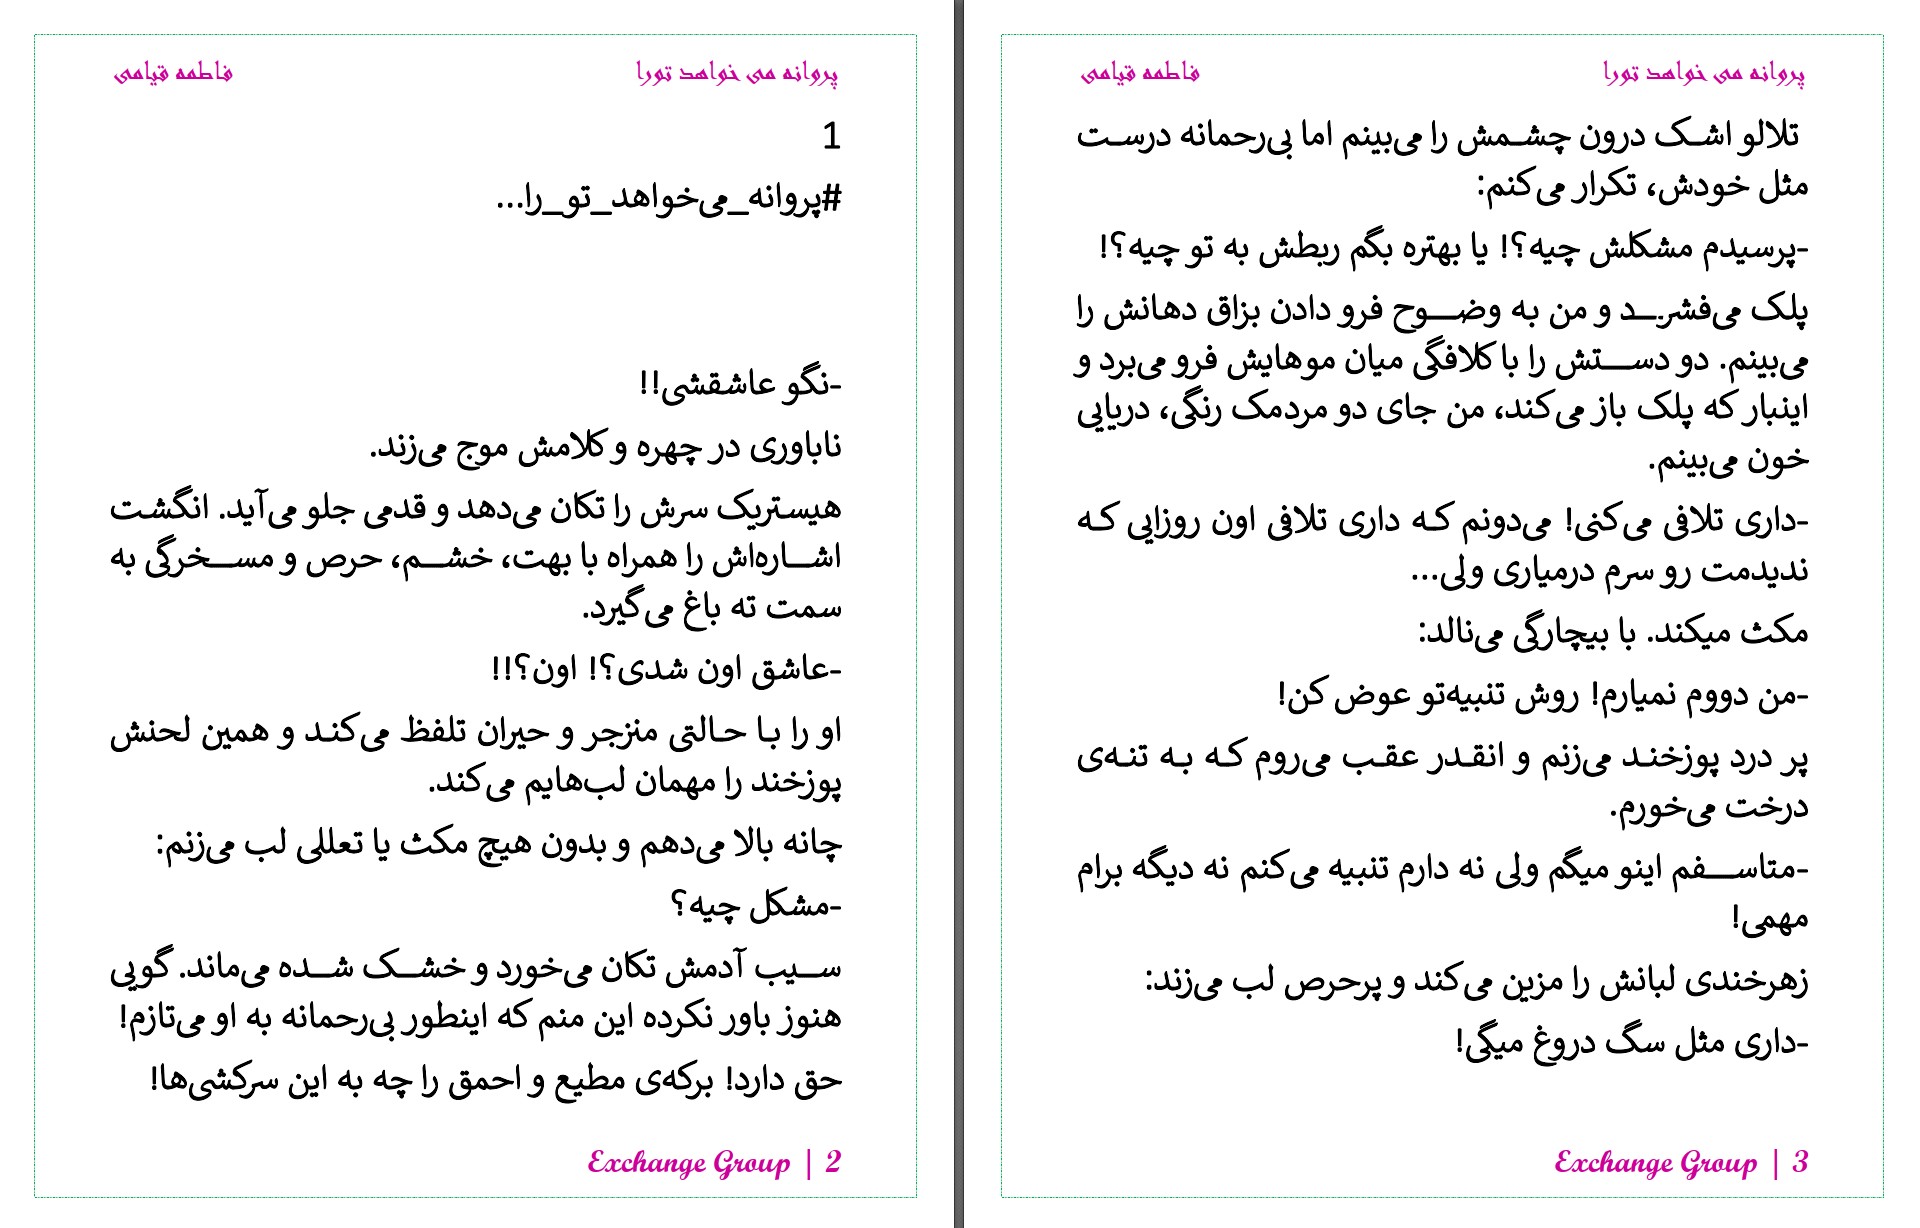 پروانه می خواهد تورا
فاطمه قیامی
1
#پروانه_می‌خواهد_تو_را...
-نگو عاشقشی!!
ناباوری در چهره و کلامش موج می‌زند.
هیستریک سرش را تکان می‌دهد و قدمی جلو می‌آید. انگشت
اشاره‌اش را همراه با بهت، خشم، حرص و مسخرگی به
سمت ته باغ می‌گیرد.
-عاشق اون شدی؟! اون؟!!
او را با حالتی منزجر و حیران تلفظ می‌کند و همین لحنش
پوزخند را مهمان لب‌هایم می‌کند.
چانه بالا می‌دهم و بدون هیچ مکث یا تعللی لب می‌زنم:
-مشکل چیه؟
سیب آدمش تکان می‌خورد و خشک شده می‌ماند. گویی
هنوز باور نکرده این منم که اینطور بی‌رحمانه به او می‌تازم!
حق دارد! برکه‌ی مطیع و احمق را چه به این سرکشی‌ها!
Exchange Group | 2
پروانه می خواهد تورا
فاطمه قیامی
تلالو اشک درون چشمش را می‌بینم اما بی‌رحمانه درست
مثل خودش، تکرار می‌کنم:
-پرسیدم مشکلش چیه؟! یا بهتره بگم ربطش به تو چیه؟!
پلک می‌فشرد و من به وضوح فرو دادن بزاق دهانش را
می‌بینم. دو دستش را با کلافگی میان موهایش فرو می‌برد و
اینبار که پلک باز می‌کند، من جای دو مردمک رنگی، دریایی
خون می‌بینم.
-داری تلافی می‌کنی! می‌دونم که داری تلافی اون روزایی که
ندیدمت رو سرم درمیاری ولی...
مکث میکند. با بیچارگی می‌نالد:
-من دووم نمیارم! روش تنبیه‌تو عوض کن!
پر درد پوزخند می‌زنم و انقدر عقب می‌روم که به تنه‌ی
درخت می‌خورم.
-متاسفم اینو میگم ولی نه دارم تنبیه می‌کنم نه دیگه برام
مهمی!
زهرخندی لبانش را مزین می‌کند و پرحرص لب می‌زند:
-داری مثل سگ دروغ میگی!
Exchange Group | 3